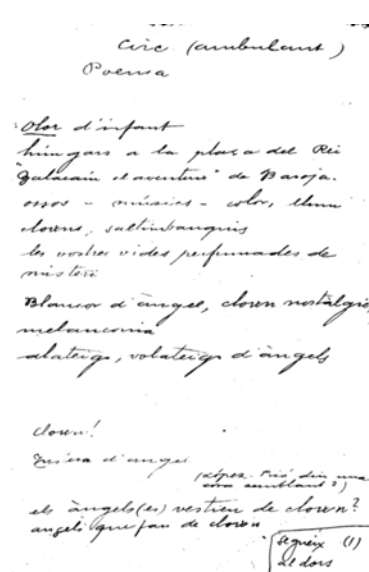 Circ (ambulant)
Poema
Olor d'infant
húngars a la plaça del Rei
"Zalacaín el de Baroja.
ossos - músics - color, llum
clowns, saltimbanquis
les vostres vides perfumades de
misteri
Blancor d'àngel, clown nostàlgic,
melanconia
alateigs, volateigs d'àngels
clown!
d'angel
(López-Picó diu una
cosa semblant?)
els àngels (es) vestien de clown?
angels que fan de clown
segueix (1)
al dors